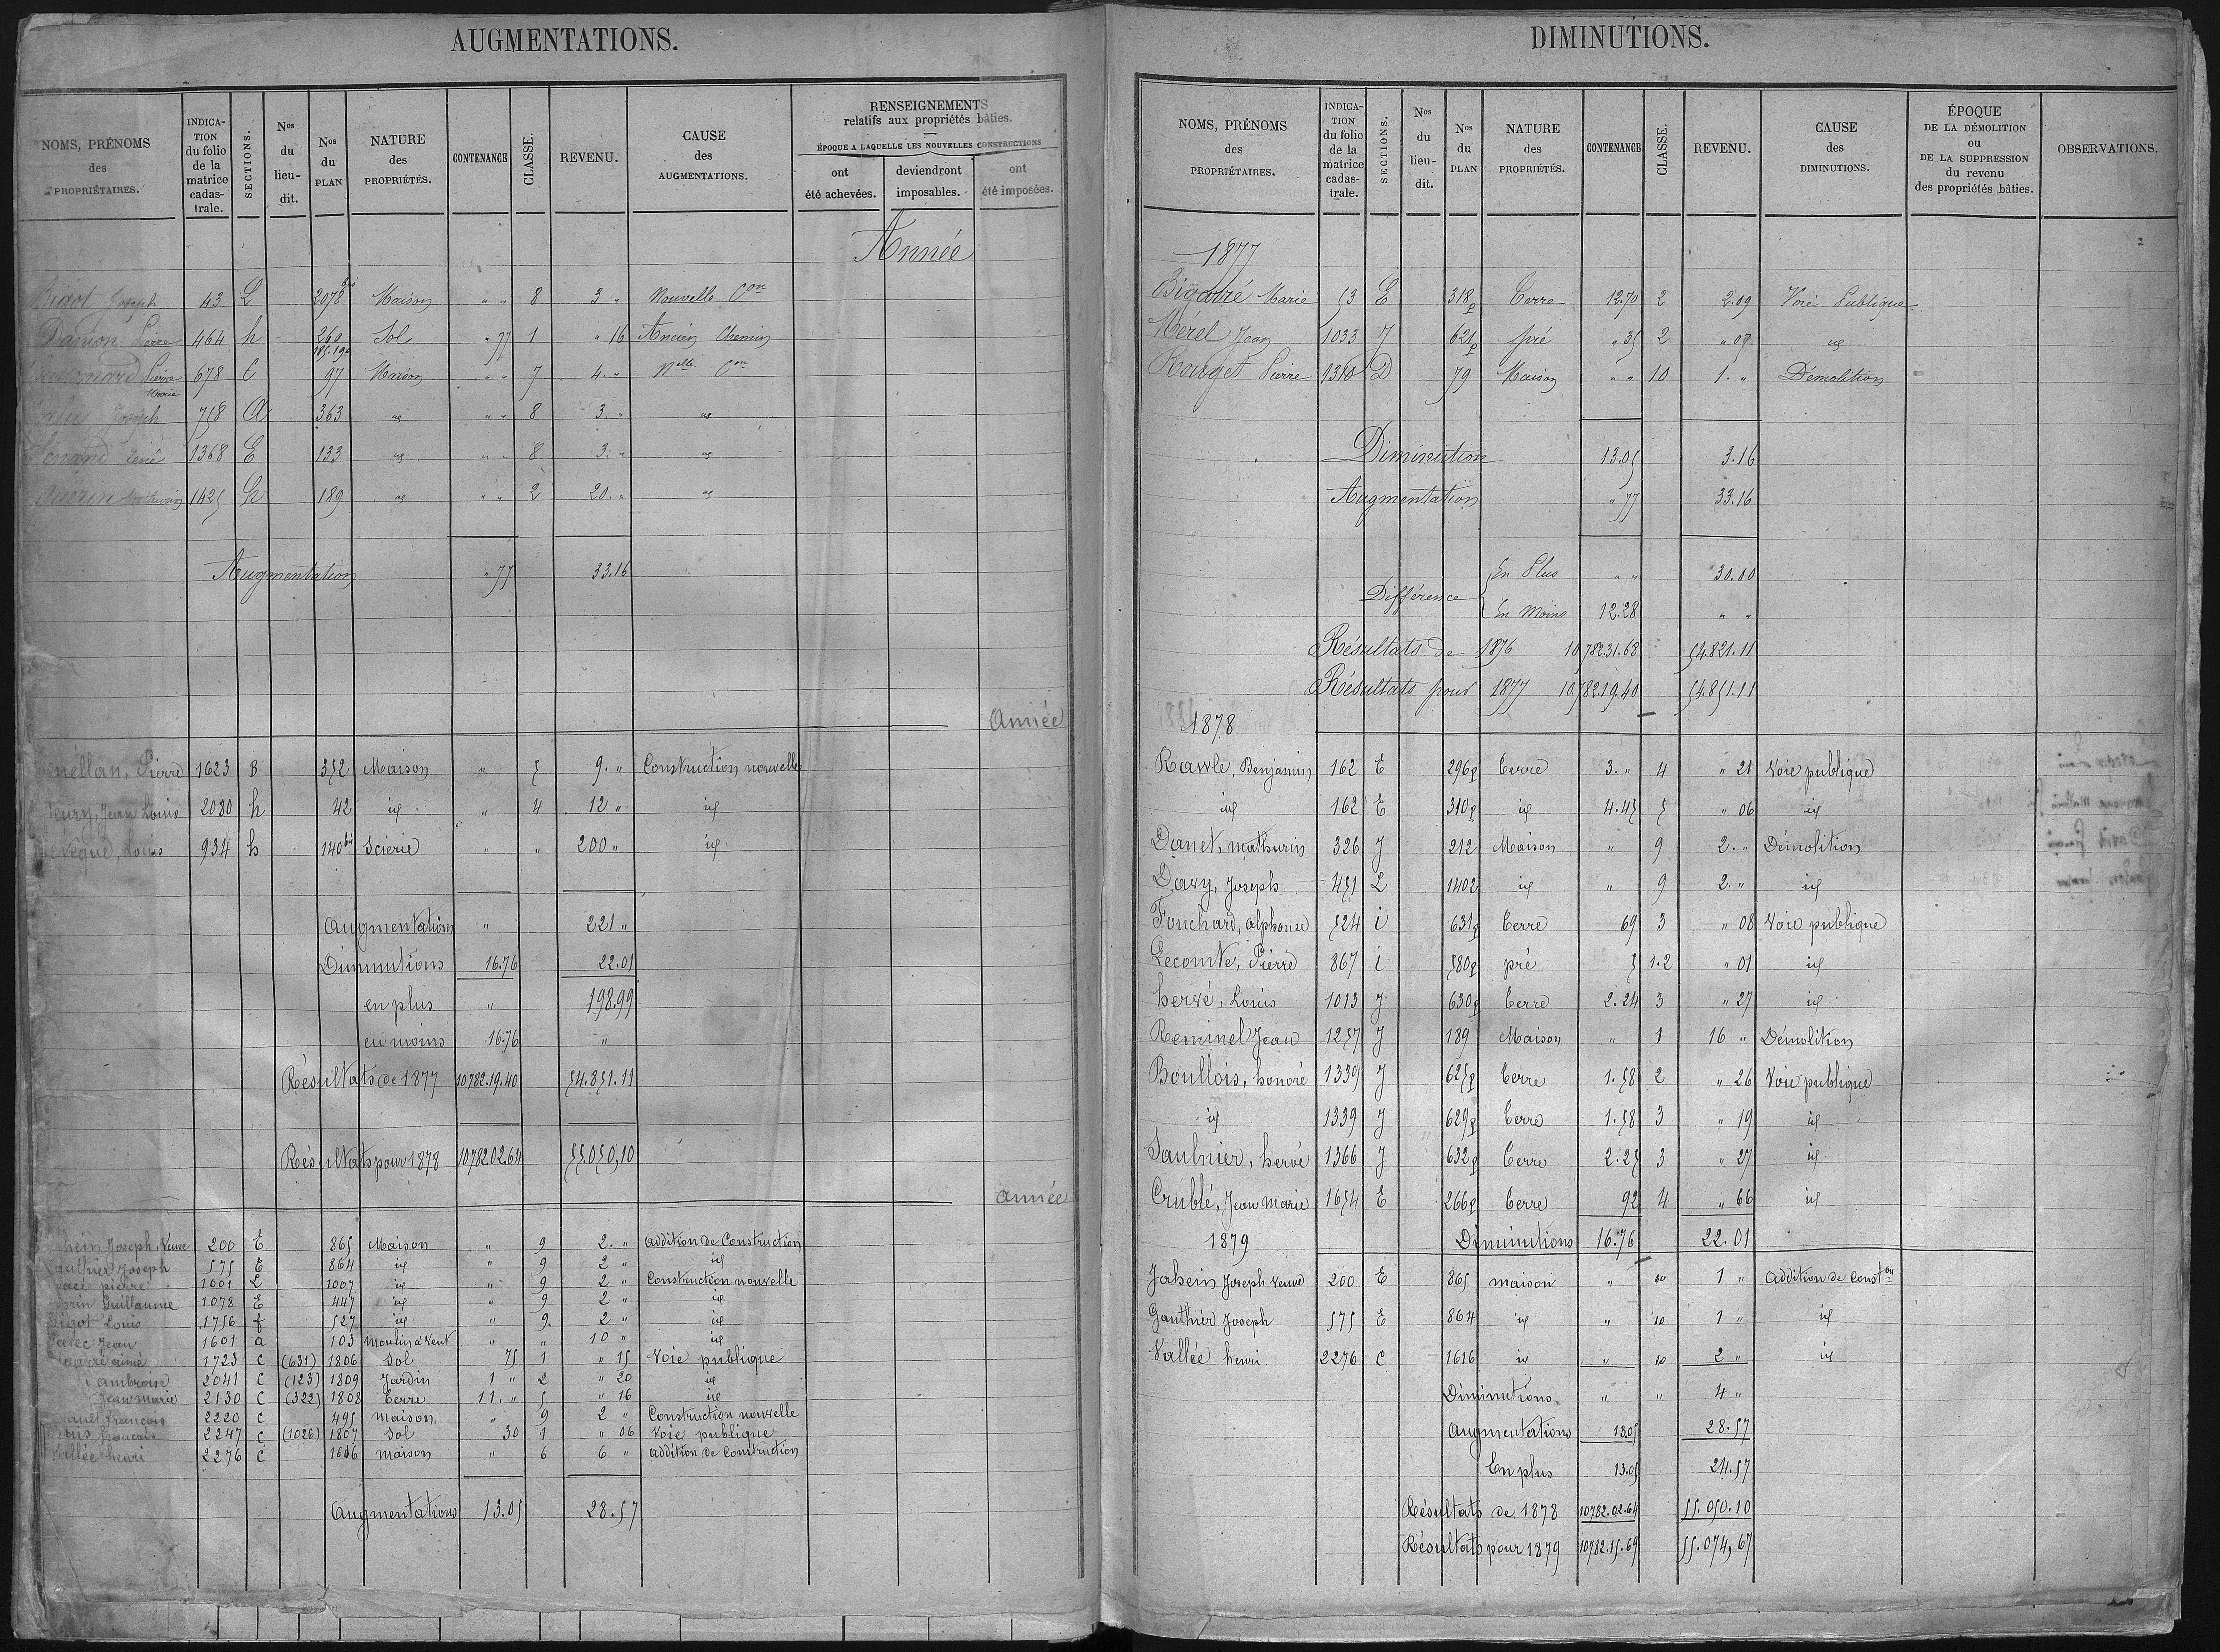 AUGMENTATIONS.
NOMS, PRÉNOMS des PROPRIÉTAIRES.
INDICA-TION du folio de la matrice cadas-trale.
SECTIONS.
Nos du lieu-dit.
Nos du PLAN
NATURE des PROPRIÉTÉS.
CONTENANCE
CLASSE.
REVENU.
CAUSE des AUGMENTATIONS.
RENSEIGNEMENTS relatifs aux propriétés bâties.
ÉPOQUE A LAQUELLE LES NOUVELLES CONSTRUCTIONS
ont été achevées.
deviendront imposables.
ont été imposées.
Année
Bigot Joseph 43 L 2078 bis Maison " " 8 3 " Nouvelle Con
Danion Pierre 464 h 260 Sol " 77 1 " 16 Ancien Chemin
185.190
Pierre Marie 678 C 97 Maison " " 7 4. " Nelle Con
Joseph 758 A 363 id " " 8 3. " id
René 1368 E 133 id " " 8 3. " id
Guérin Mathurin 1425 h 189 id " " 2 20. " id
Augmentation " 77 33.16
Année
Pierre 1623 B 352 Maison " 5 9. " Construction nouvelle
Jean Louis 2080 h 42 id " 4 12 " id
Louis 934 h 140 bis Scierie " " 200 " id
Augmentations " 221 "
Diminutions 16.76 22.01
en plus " 198.99
en moins 16.76 "
Résultats de 1877 10782.19.40 54.851.11
Résultats pour 1878 10782.02.64 55.050,10
année
Joseph, Veuve 200 E 865 Maison " 9 2. " addition de Construction
Joseph 575 E 864 id " 9 2 " id
pierre 1001 L 1007 id " 9 2 " Construction nouvelle
Guillaume 1078 E 447 id " 9 2 " id
Bigot Louis 1756 f 527 id " 9. 2 " id
Jean 1601 a 103 moulin à Vent " " 10 " id
aimé 1723 C (631) 1806 Sol 75 1 " 15 Voie publique
ambroise 2041 C (123) 1809 Jardin 1 " 2 " 20 id
Jean marie 2130 C (322) 1808 Terre 11. " 5 " 16 id
François 2220 C 495 maison " 9 2 " Construction nouvelle
françois 2247 C (1026) 1807 Sol 30 1 " 06 Voie publique
Vallée henri 2276 C 1616 maison " 6 6 " addition de Construction
Augmentations 13.05 28.57
DIMINUTIONS.
NOMS, PRÉNOMS des PROPRIÉTAIRES.
INDICA-TION du folio de la matrice cadas-trale.
SECTIONS.
Nos du lieu-dit.
Nos du PLAN
NATURE des PROPRIÉTÉS.
CONTENANCE
CLASSE.
REVENU.
CAUSE des DIMINUTIONS.
ÉPOQUE DE LA DÉMOLITION OU DE LA SUPPRESSION du revenu des propriétés bâties.
OBSERVATIONS.
1877
Bigarré Marie 53 E 318p Terre 12.70 2 2.09 Voie Publique
Mérel Jean 1033 J 621p pré " 35 2 " 07 id
Rouget Pierre 1310 D 79 Maison " " 10 1. " Démolition
Diminution 13.05 3.16
Augmentation " 77 33.16
Différence
En Plus " " 30.00
En Moins 12.28 " "
Résultats de 1876 10782.31.68 54.821.11
Résultats pour 1877 10782.19.40 54.851.11
1878
Rawle, Benjamin 162 E 296p Terre 3. " 4 " 21 Voie publique
id 162 E 310p id 4.45 5 " 06 id
Danet, mathurin 326 J 212 Maison " 9 2. " Démolition
Davy, Joseph 451 L 1402 id " 9 2. " id
Fouchard, alphonse 524 i 631p Terre 69 3 " 08 Voie publique
Lecomte, Pierre 867 i 580p pré 5 1.2 " 01 id
hervé, Louis 1013 J 630p Terre 2.24 3 " 27 id
Reminel Jean 1257 J 189 Maison " 1 16 " Démolition
Boullois, honoré 1339 J 625p Terre 1.58 2 " 26 Voie publique
id 1339 J 629p Terre 1.58 3 " 19 id
Saulnier, hervé 1366 J 632p Terre 2.25 3 " 27 id
Crublé, Jean Marie 1654 E 266p Terre 92 4 " 66 id
Diminutions 16.76 22.01
1879
Jahein Joseph Veuve 200 E 865 maison " 10 1 " addition de Conston
Gauthier Joseph 575 E 864 id " 10 1 " id
Vallée henri 2276 C 1616 id " 10 2 " id
Diminutions " " 4 "
Augmentations 13.05 28.57
En plus 13.05 24.57
Résultats de 1878 10782.02.64 55.050.10
Résultats pour 1879 10782.15.69 55.074,67